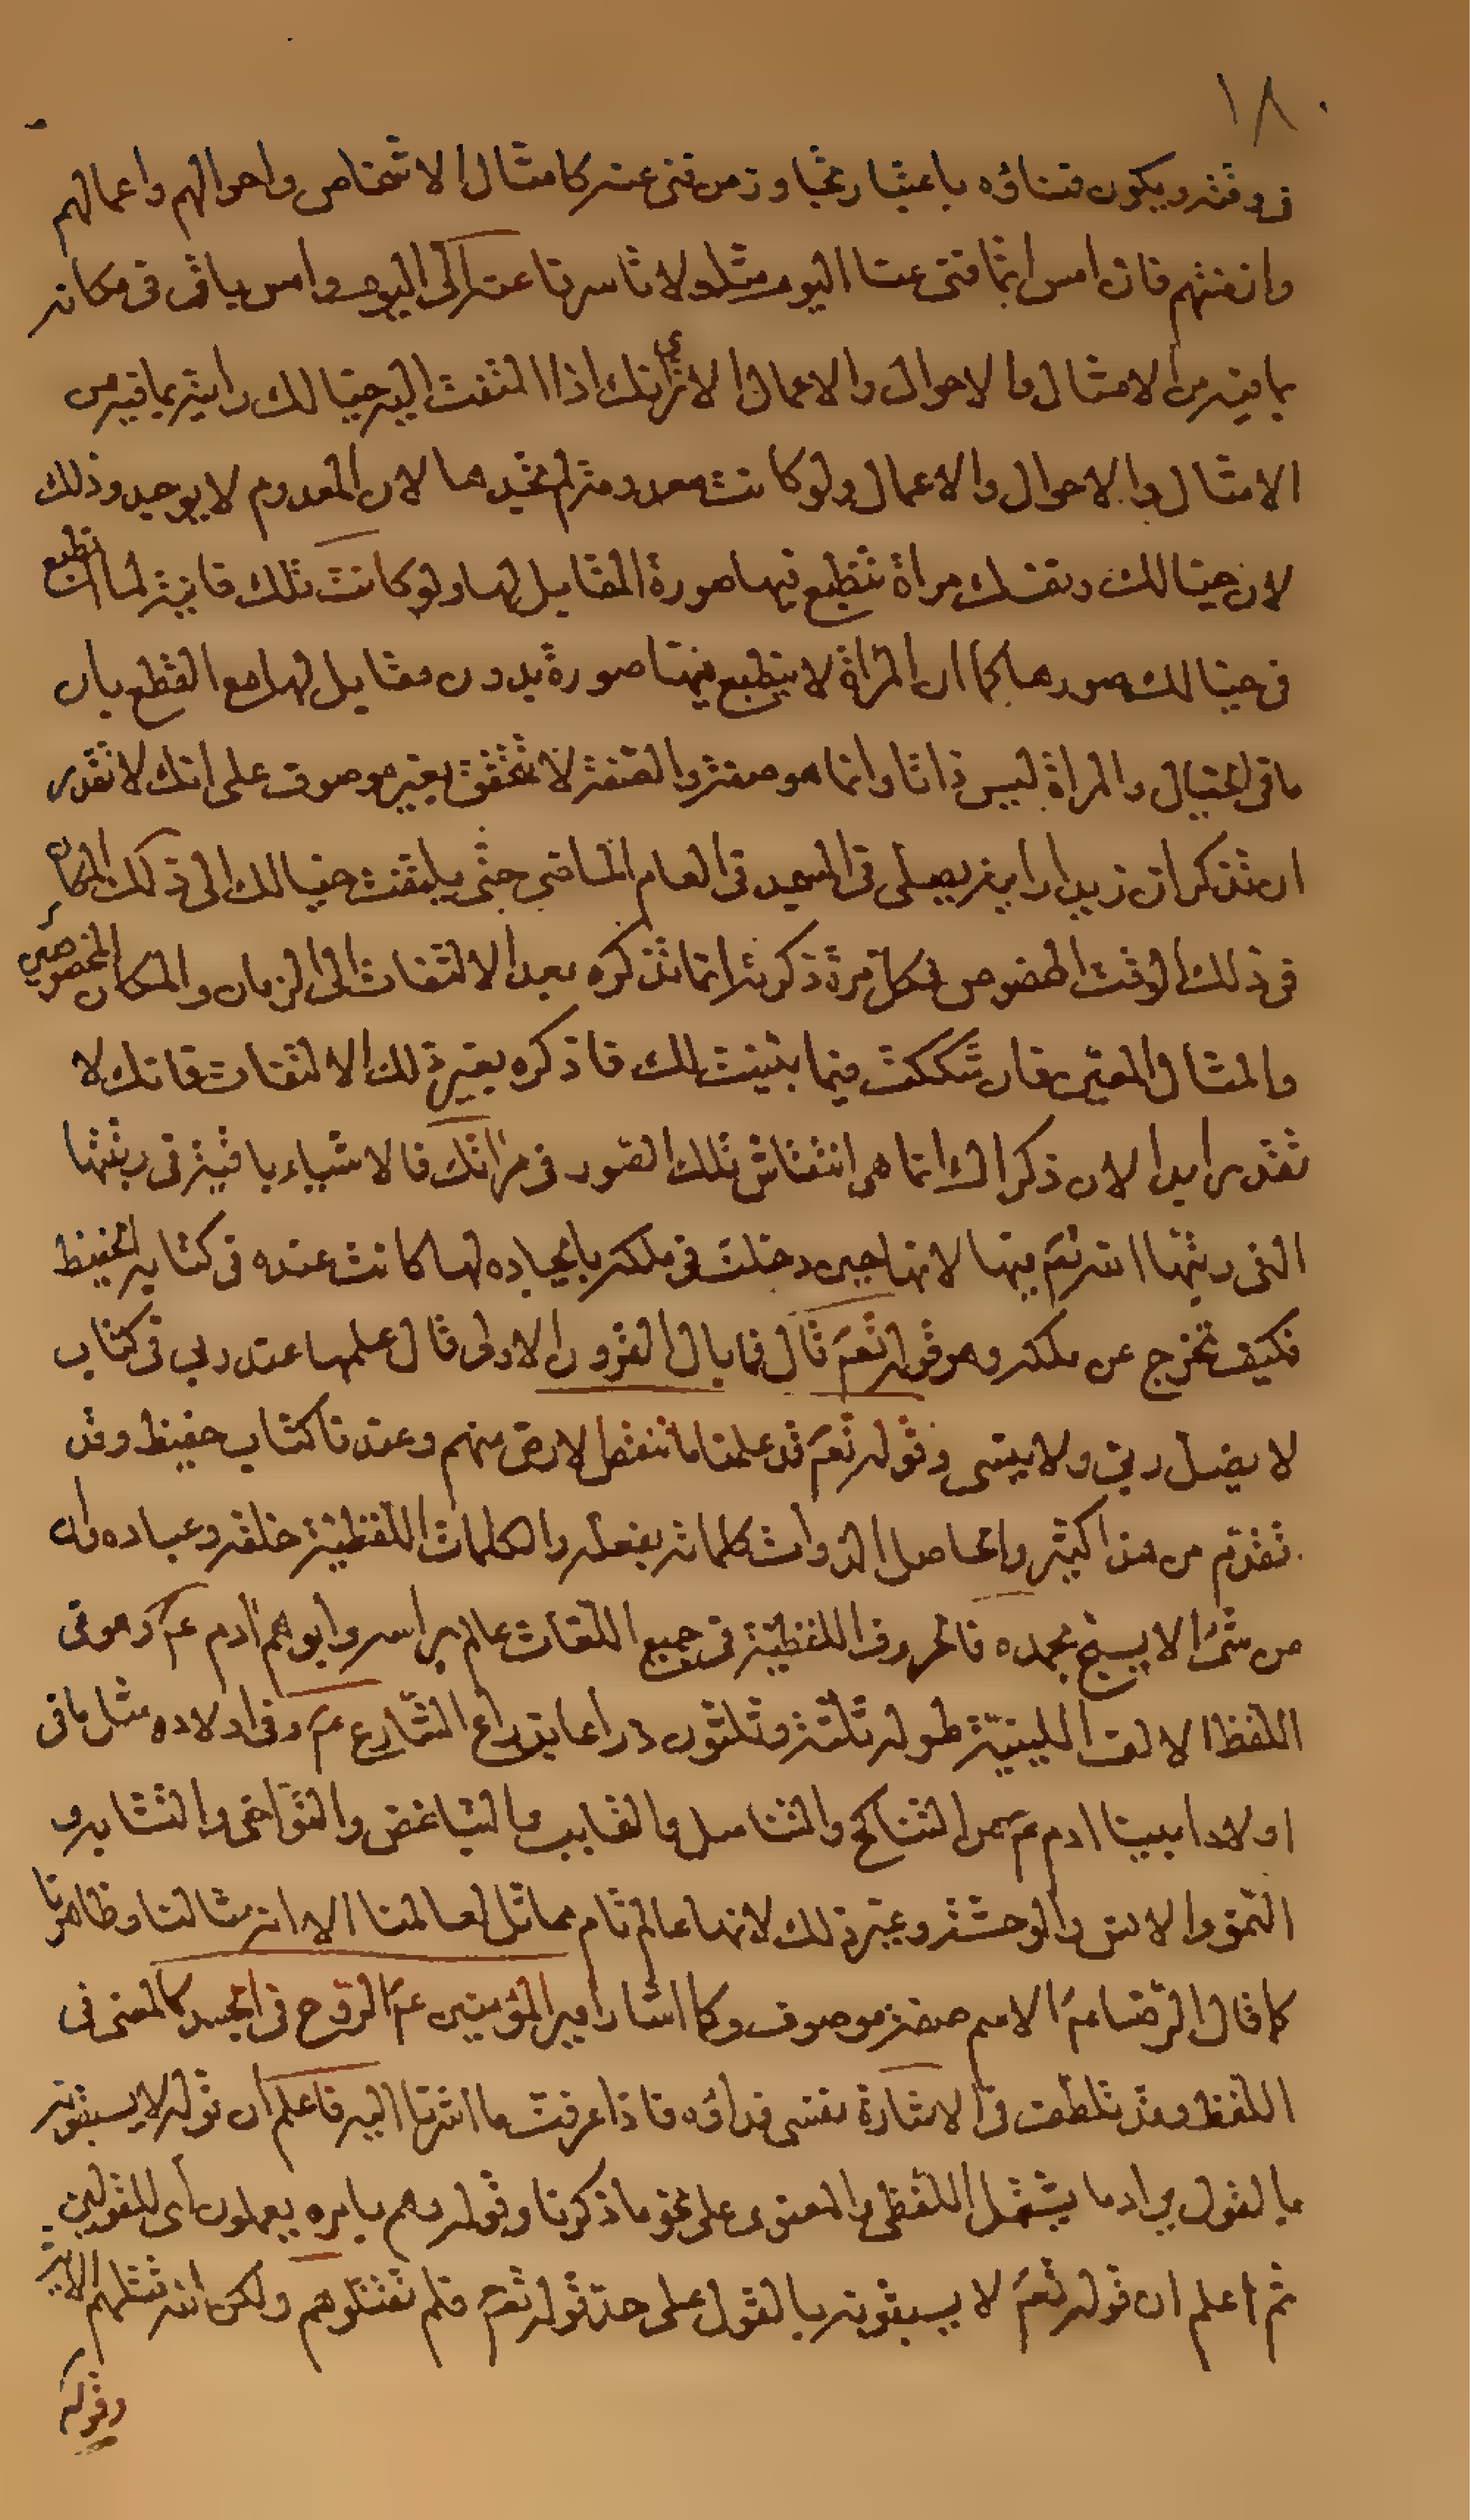 ١٨٠
في وقته ويكون فناؤه باعتبار تجاوز من فنى عنه كامثال الاشخاص واحوالهم واعمالهم
وازمنتهم فان امس انما فنى عنا اليوم مثله لانا سرنا عنه الى اليوم وامس باقى فى مكانه
بما فيه من الامثال والاحوال والاعمال الا ترى انك اذا التفت اليه خيالك رايته بما فيه من
الامثال والاحوال والاعمال ولو كانت معدومة لم تجدها لان المعدوم لا يوجد وذلك
لان خيالك ونفسك مراة تنطبع فيها صورة المقابل لها ولو كانت تلك فانية لما انطبع
فى خيالك صورها كما ان المراة لا ينطبع فيها صورة بدون مقابل لها مع القطع بان
ما فى الخيال والمراة ليس ذاتا وانما هو صفة والصفة لا تتحقق بغير موصوف على انك لا تقدر
ان تتذكر ان زيدا رايته يصلى فى المسجد فى العام الماضى حتى يلتفت خيالك الى ذلك المكان
فى ذلك الوقت المخصوص فكل مرة ذكرته انما تذكره بعد الالتفات الى الزمان والمكان المخصوصين
والمثال المعين فان شككت فيما بينت لك فاذكره بغير ذلك الالتفات فانك لا
تقدر ابدا لان ذكرك انما هى انتقاش تلك الصور فى مراتك فالاشياء باقية فى رتبتها
التى رتبها الله تعم فيها لانها حين دخلت فى ملكه بايجاده لها كانت عنده فى كتابه الحفيظ
فكيف تخرج عن ملكه وهو قوله تعم قال فما بال القرون الاولى قال علمها عند ربى فى كتاب
لا يضل ربى ولا ينسى وقوله تعم قد علمنا ما تنقص الارض منهم وعندنا كتاب حفيظ وقد
تقدم من هذا كثير والحاصل الذوات كلماته بفعله والكلمات اللفظية خلقه وعباده وان
من شئ الا يسبح بحمده فالحروف اللفظية فى جميع اللغات عالم براسه وابوهم ادم عم وهو فى
اللفظ الالف اللينية طوله ثلثة وثلثون ذراعا بذراع الشارع عم وفى اولاده مثل ما فى
اولاد ابينا ادم عم من التناكح والتناسل والتحابب والتباغض والتواخى والتدابر و
النمو والانس والوحشة وغير ذلك لانها عالم تام مماثل لعالمنا الا انه مثالنا وظاهرنا
كما قال الرضا عم الاسم صفة موصوف وكما اشار امير المؤمنين عم الروح فى الجسد كالمعنى فى
اللفظ وقد تلطف فى الاشارة نفسى فداؤه فاذا عرفت ما اشرنا اليه فاعلم ان قوله لا يسبقونه
بالقول يراد ما يشتمل اللفظى والمعنوى على نحو ما ذكرنا وقوله وهم بامره يعملون اى للقولين
ثم اعلم ان قوله تعم لا يسبقونه بالقول على حد قوله تعم فلم تقتلوهم ولكن الله قتلهم الاية
وقوله